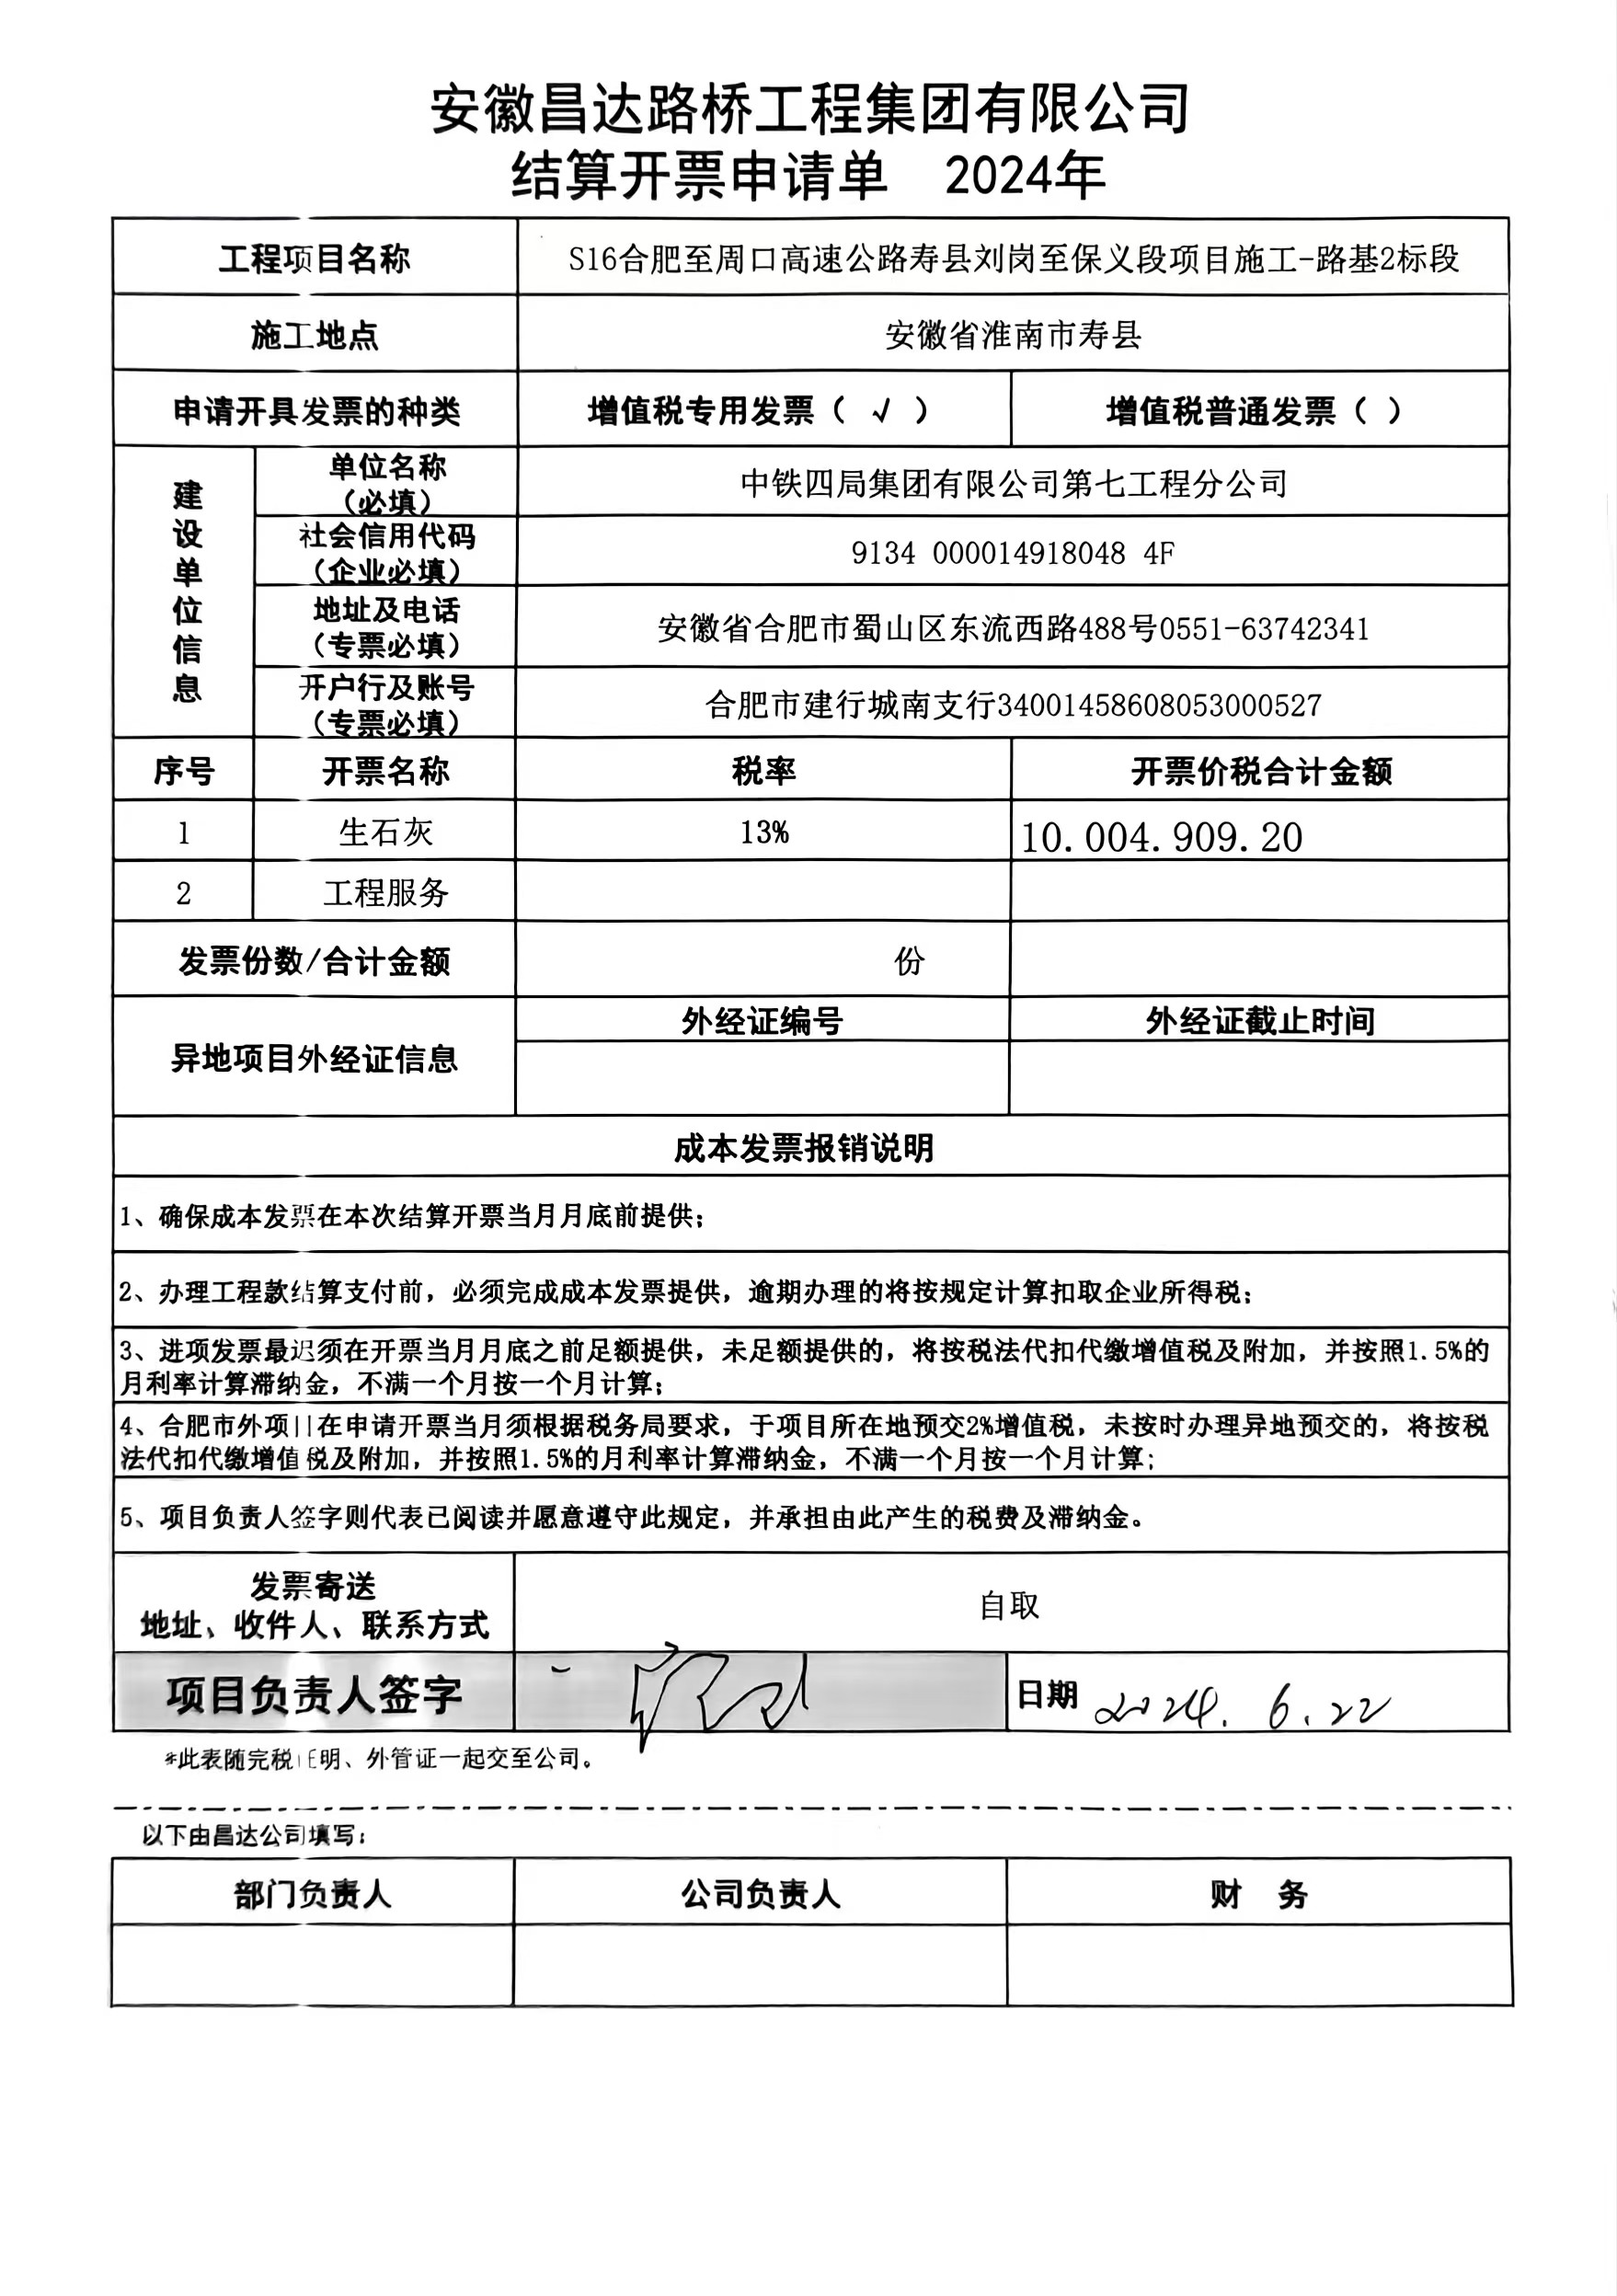 安徽昌达路桥工程集团有限公司
结算开票申请单 2024年
工程项目名称 S16合肥至周口高速公路寿县刘岗至保义段项目施工-路基2标段
施工地点 安徽省淮南市寿县
申请开具发票的种类 增值税专用发票（ √ ） 增值税普通发票（ ）
建设单位信息
单位名称
（必填）
中铁四局集团有限公司第七工程分公司
社会信用代码
（企业必填）
9134 000014918048 4F
地址及电话
（专票必填）
安徽省合肥市蜀山区东流西路488号0551-63742341
开户行及账号
（专票必填）
合肥市建行城南支行34001458608053000527
序号 开票名称 税率 开票价税合计金额
1 生石灰 13% 10.004.909.20
2 工程服务
发票份数/合计金额 份
异地项目外经证信息
外经证编号 外经证截止时间
成本发票报销说明
1、确保成本发票在本次结算开票当月月底前提供；
2、办理工程款结算支付前，必须完成成本发票提供，逾期办理的将按规定计算扣取企业所得税；
3、进项发票最迟须在开票当月月底之前足额提供，未足额提供的，将按税法代扣代缴增值税及附加，并按照1.5%的
月利率计算滞纳金，不满一个月按一个月计算；
4、合肥市外项目在申请开票当月须根据税务局要求，于项目所在地预交2%增值税，未按时办理异地预交的，将按税
法代扣代缴增值税及附加，并按照1.5%的月利率计算滞纳金，不满一个月按一个月计算；
5、项目负责人签字则代表已阅读并愿意遵守此规定，并承担由此产生的税费及滞纳金。
发票寄送
地址、收件人、联系方式
自取
项目负责人签字 日期 2024. 6.22
*此表随完税证明、外管证一起交至公司。
以下由昌达公司填写：
部门负责人 公司负责人 财 务